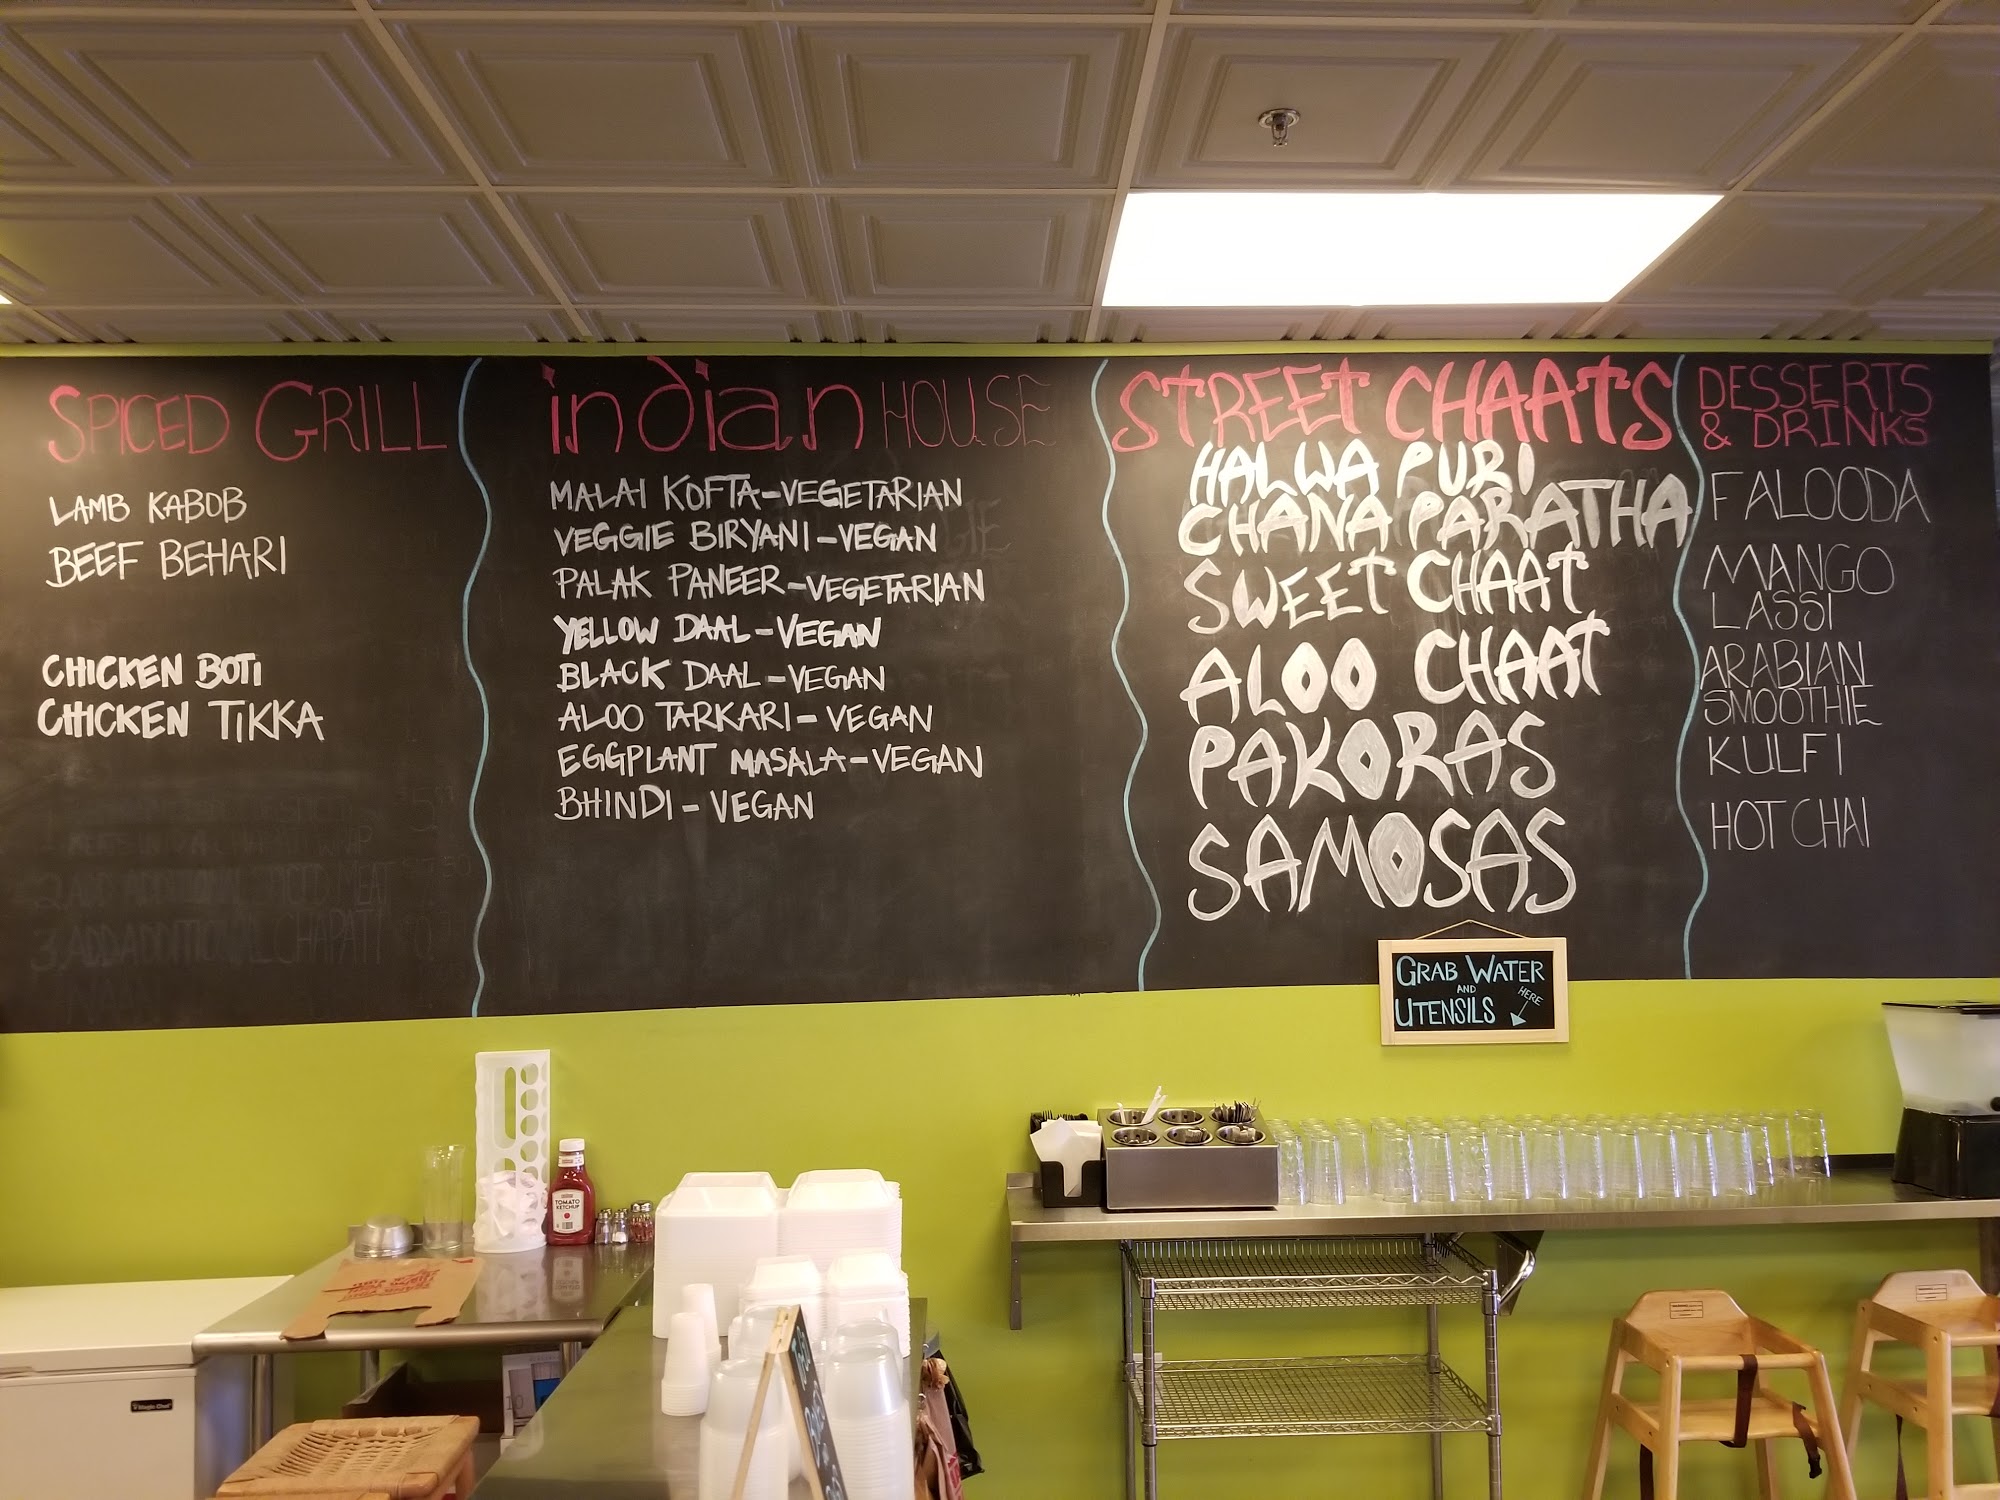 SPICED GRILL
LAMB KABOB
BEEF BEHARI
CHICKEN BOTI
CHICKEN TIKKA
2. ADD ADDITIONAL MEAT
3. ADD ADDITIONAL CHAPATI
indian HOUSE
MALAI KOFTA-VEGETARIAN
VEGGIE BIRYANI-VEGAN
PALAK PANEER-VEGETARIAN
YELLOW DAAL-VEGAN
BLACK DAAL-VEGAN
ALOO TARKARI-VEGAN
EGGPLANT MASALA-VEGAN
BHINDI-VEGAN
STREET CHAATS
HALWA PURI
CHANA PARATHA
SWEET CHAAT
ALOO CHAAT
PAKORAS
SAMOSAS
DESSERTS
& DRINKS
FALOODA
MANGO
LASSI
ARABIAN
SMOOTHIE
KULFI
HOT CHAI
GRAB WATER
AND
UTENSILS
HERE
TOMATO
KETCHUP
Magic Chef